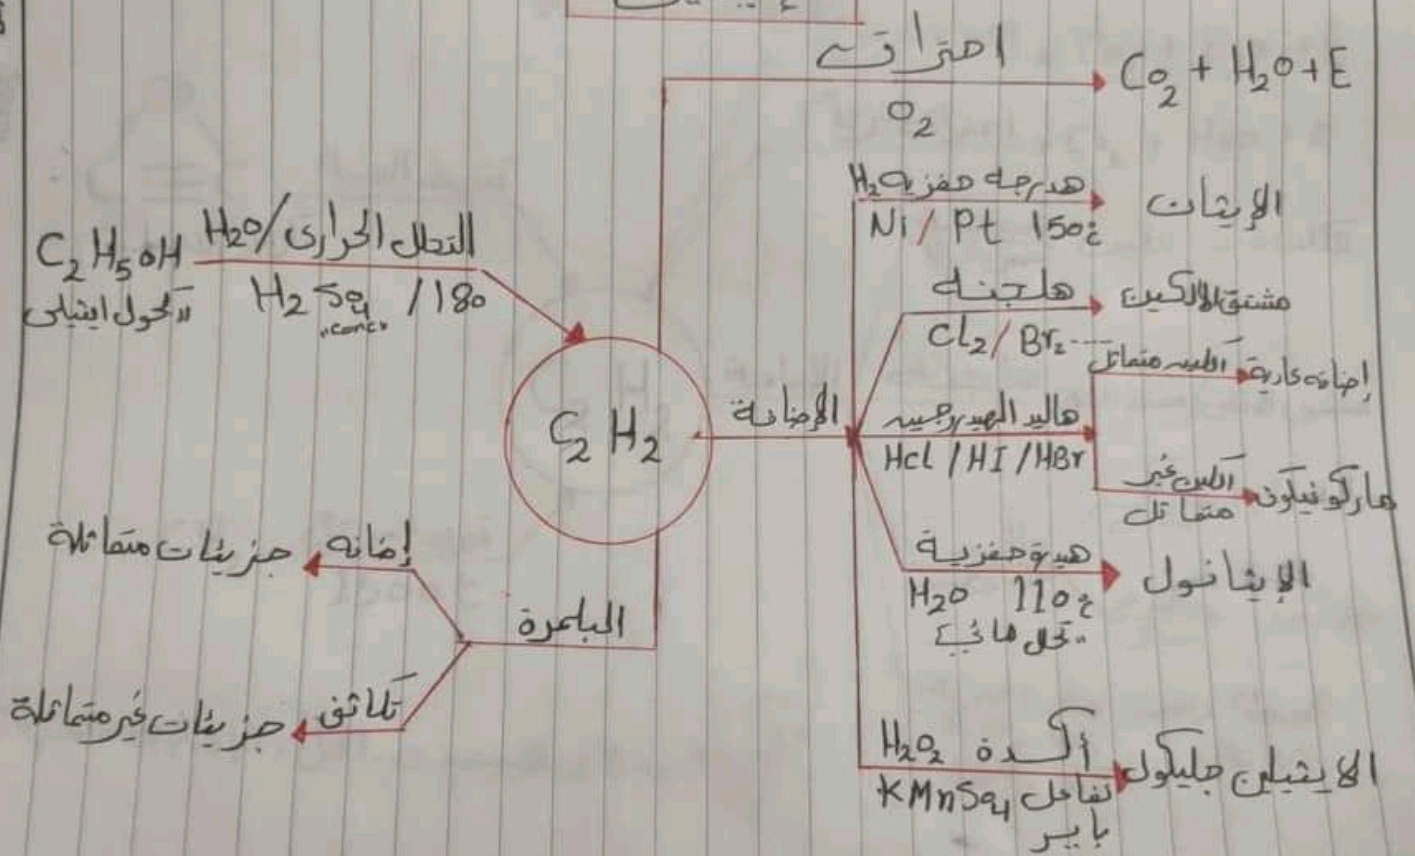 احتراق
O2
Co2 + H2O + E
هدرجه حفزية H2
Ni / Pt 150ْم
الإيثان
C2H5OH
كحول ايثيلى
H2O / التحلل الحرارى
H2SO4 / 180
"conc"
هلجنه
Cl2 / Br2
مشتق الالكين
C2H2
الإضافة
هاليد الهيدروجين
Hcl / HI / HBr
الكين متماثل
إضافه عادية
الكين غير
متماثل
ماركونيكون
هيدرة حفزية
H2O 110ْم
"تحلل مائي"
الإيثانول
البلمرة
إضافه
جزيئات متماثلة
تكاثف
جزيئات غير متماثلة
أكسدة H2O2
KMnSO4 تفاعل
باير
الايثيلين جليكول